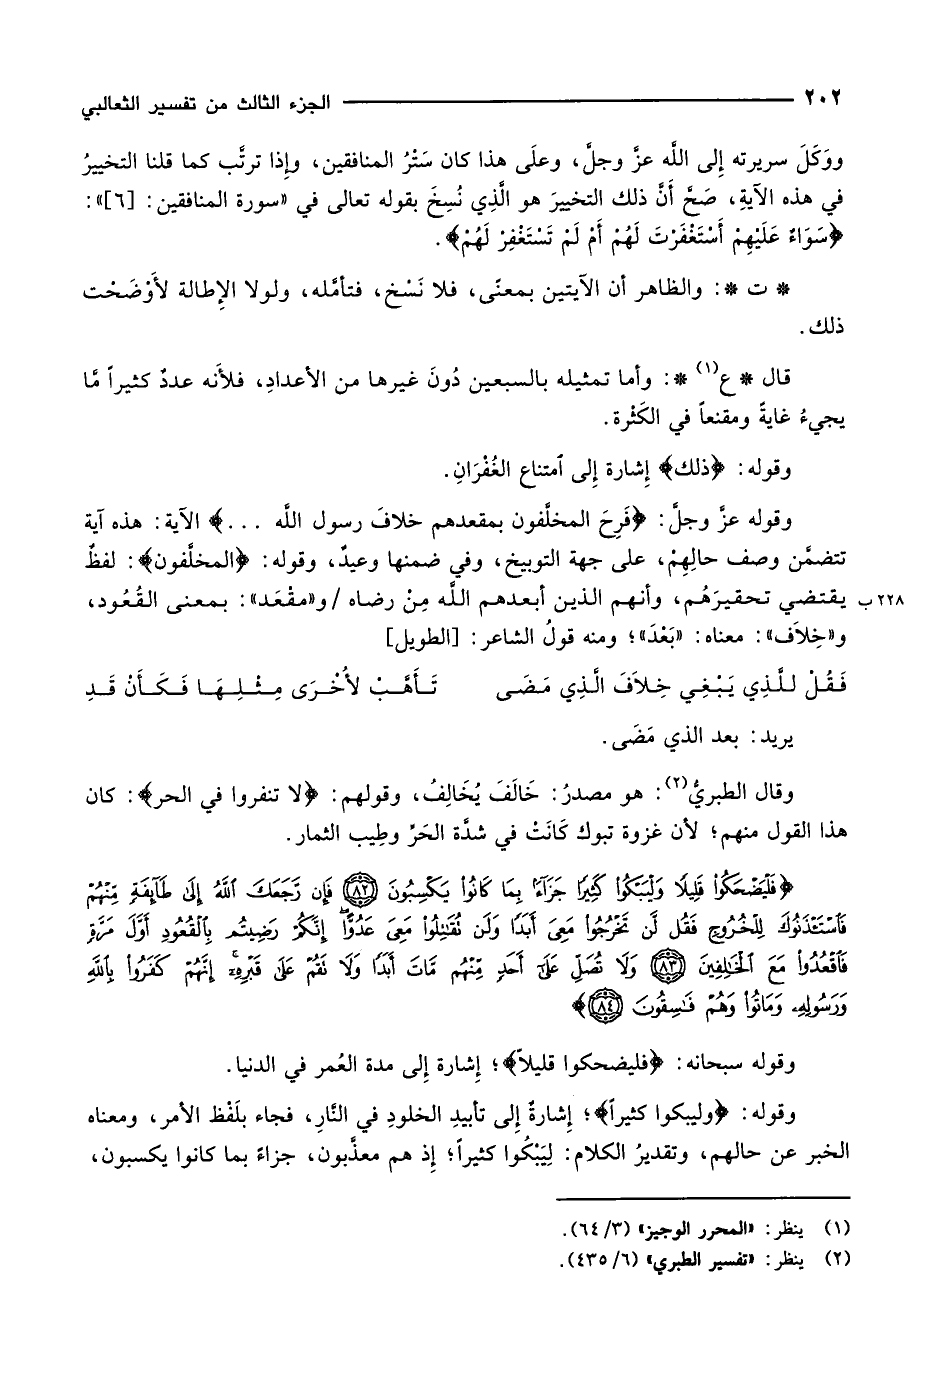 ٢٠٢ الجزء الثالث من تفسير الثعالبي
ووَكَلَ سريرته إلى اللَّه عزَّ وجلَّ، وعلَى هذا كان سَتْرُ المنافقين، وإِذا ترتَّب كما قلنا التخييرُ
في هذه الآيةِ، صَحَّ أَنَّ ذلك التخييرَ هو الَّذِي نُسِخَ بقوله تعالى في «سورة المنافقين: [٦]»:
﴿سَوَاءٌ عَلَيْهِمْ أَسْتَغْفَرْتَ لَهُمْ أَمْ لَمْ تَسْتَغْفِرْ لَهُمْ﴾.
* ت *: والظاهر أن الآيتين بمعنًى، فلا نَسْخ، فتأمَّله، ولولا الإِطالة لأَوْضَحْت
ذلك.
قال * ع(١) *: وأما تمثيله بالسبعين دُونَ غيرها من الأعدادِ، فلأنه عددٌ كثيراً مَّا
يجيءُ غايةً ومقنعاً في الكَثْرة.
وقوله: ﴿ذلك﴾ إشارة إلى ٱمتناع الغُفْرَانِ.
وقوله عزَّ وجلَّ: ﴿فَرِحَ المخلَّفون بمقعدهم خلافَ رسول اللَّه ...﴾ الآية: هذه آية
تتضمَّن وصف حالِهِمْ، على جهة التوبيخ، وفي ضمنها وعيدٌ، وقوله: ﴿المخلَّفون﴾: لفظٌ
٢٢٨ ب يقتضي تحقيرَهُم، وأنهم الذين أبعدهم اللَّه مِنْ رضاه /و«مقْعَد»: بمعنى القُعُود،
و«خِلاَف»: معناه: «بَعْدَ»؛ ومنه قولُ الشاعر: [الطويل]
فَقُلْ للَّذِي يَبْغِي خِلاَفَ الَّذِي مَضَى تَأَهَّبْ لأُخْرَى مِثْلِهَا فَكَأَنْ قَدِ
يريد: بعد الذي مَضَى.
وقال الطبريُّ(٢): هو مصدرُ: خَالَفَ يُخَالِفُ، وقولهم: ﴿لا تنفروا في الحر﴾: كان
هذا القول منهم؛ لأن غزوة تبوك كَانَتْ في شدَّة الحَرِّ وطِيب الثمار.
﴿فَلْيَضْحَكُوا۟ قَلِيلًا وَلْيَبْكُوا۟ كَثِيرًا جَزَآءًۢ بِمَا كَانُوا۟ يَكْسِبُونَ ٨٢ فَإِن رَّجَعَكَ ٱللَّهُ إِلَىٰ طَآئِفَةٍ مِّنْهُمْ
فَٱسْتَـْٔذَنُوكَ لِلْخُرُوجِ فَقُل لَّن تَخْرُجُوا۟ مَعِىَ أَبَدًا وَلَن تُقَـٰتِلُوا۟ مَعِىَ عَدُوًّا ۖ إِنَّكُمْ رَضِيتُم بِٱلْقُعُودِ أَوَّلَ مَرَّةٍ
فَٱقْعُدُوا۟ مَعَ ٱلْخَـٰلِفِينَ ٨٣ وَلَا تُصَلِّ عَلَىٰٓ أَحَدٍ مِّنْهُم مَّاتَ أَبَدًا وَلَا تَقُمْ عَلَىٰ قَبْرِهِۦٓ ۖ إِنَّهُمْ كَفَرُوا۟ بِٱللَّهِ
وَرَسُولِهِۦ وَمَاتُوا۟ وَهُمْ فَـٰسِقُونَ ٨٤﴾
وقوله سبحانه: ﴿فليضحكوا قليلاً﴾؛ إِشارة إِلى مدة العُمر في الدنيا.
وقوله: ﴿وليبكوا كثيراً﴾؛ إِشارةٌ إِلى تأبيدِ الخلودِ في النَّارِ، فجاء بلَفْظ الأمر، ومعناه
الخبر عن حالهم، وتقديرُ الكلام: لِيَبْكُوا كثيراً؛ إِذ هم معذَّبون، جزاءً بما كانوا يكسبون،
(١) ينظر: «المحرر الوجيز» (٣/ ٦٤).
(٢) ينظر: «تفسير الطبري» (٦/ ٤٣٥).